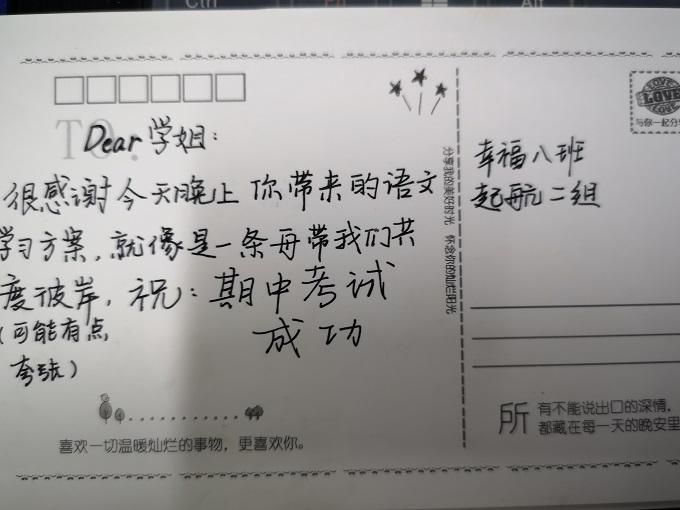 Ctrl
Fn
Alt
TO.
Dear 学姐:
很感谢今天晚上 你带来的语文
学习方案,就像是一条舟带我们共
度彼岸,祝:期中考试
成功
(可能有点
夸张)
喜欢一切温暖灿烂的事物,更喜欢你。
分享我的美好时光 怀念你的灿烂阳光
幸福八班
起航二组
LOVE
LOVE
与你一起分
所
有不能说出口的深情,
都藏在每一天的晚安里